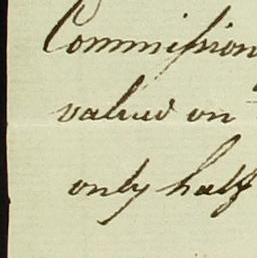 Commission
valued on
only half